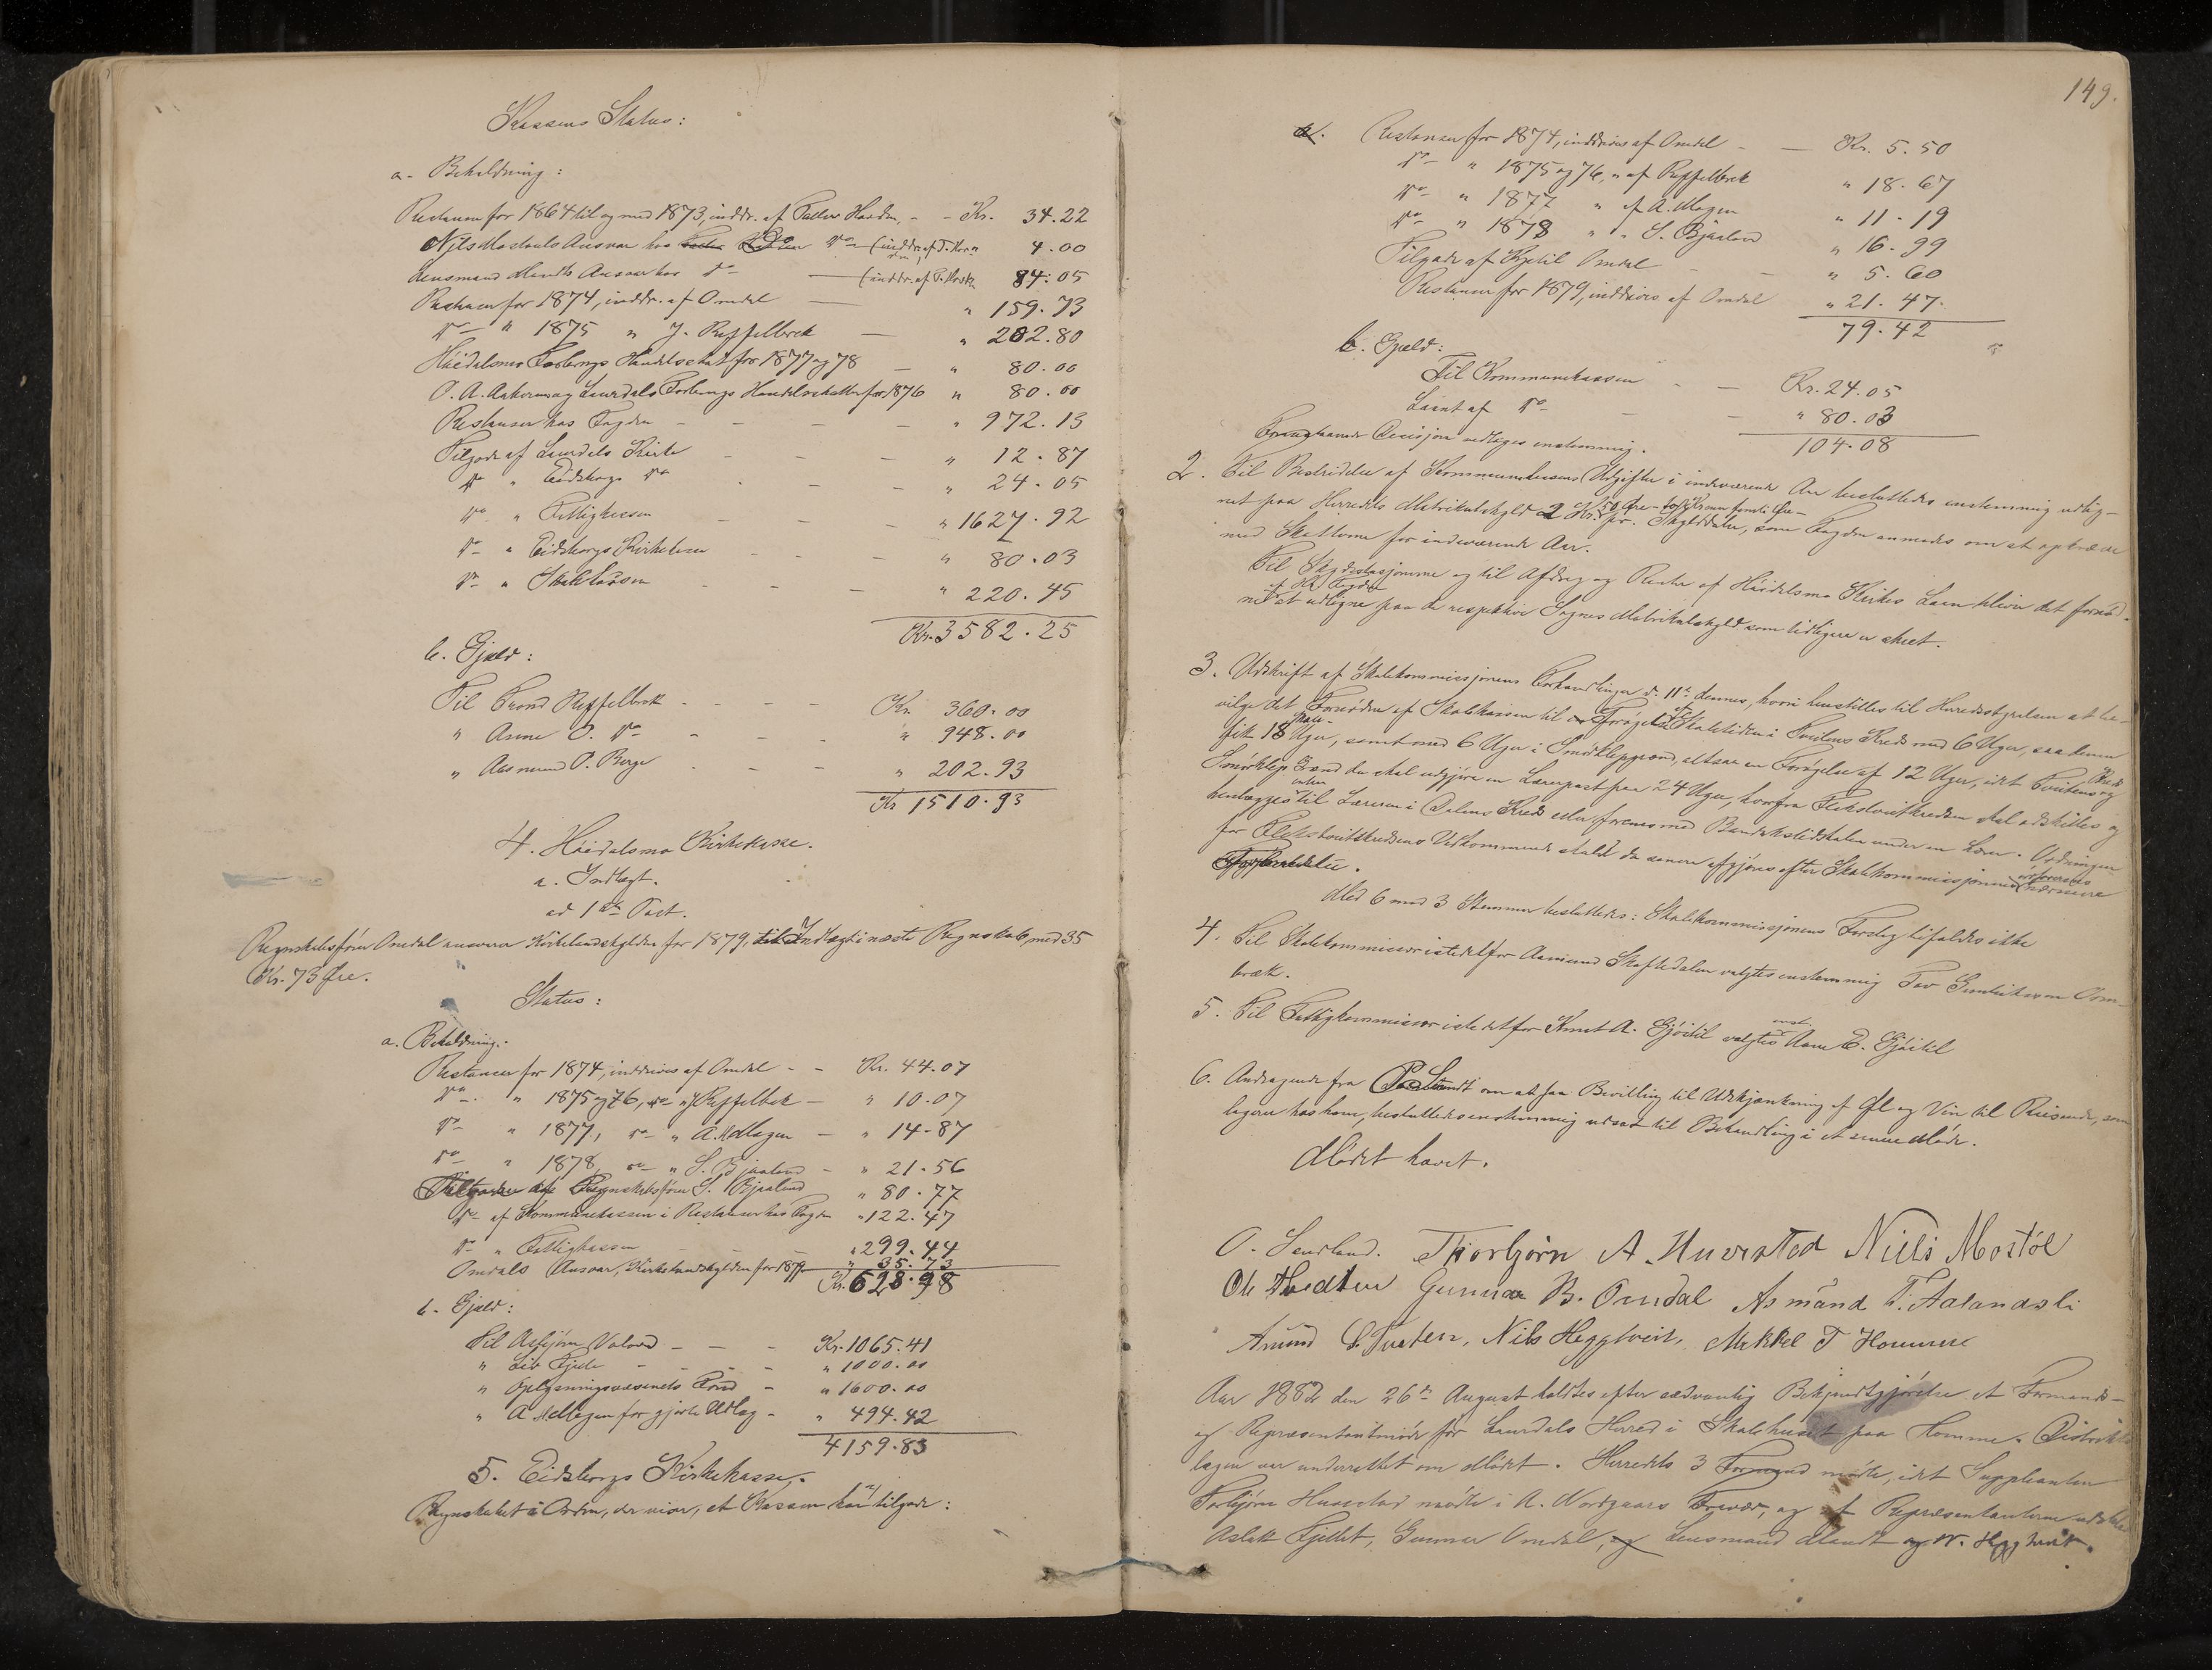 Kassens Status:
a. Behaldning:
Restancer for 1864 til og med 1873, inddr. af Halvor - - Kr. 34.22
Nils Mostøls Ansvar hos Do (inddr. af 4.00
Lensmand Mandts Ansvar hos Do — (inddr. af 84.05
Restancer for 1874, inddr. af Omdal — " 159.73
Do — " 1875 " J. Reppelbrek — " 202.80
Høidalsmo Forbrugs Handelsskat for 1877 og 78 — " 80.00
O. A. og Laurdals Forbrugs Handelsskatter for 1876 " 80.00
Restancer hos Fogden - - - - " 972.13
Tilgode af Laurdals Kirke - - - " 12.87
Do " Eidsborgs Do - - - " 24.05
Do " Fattigkassen - - - " 1627.92
Do " Eidsborgs Kirkekasse - - - " 80.03
Do " Skolekassen - - - " 220.45
Kr. 3582.25
b. Gjæld:
Til Trond Reppelbrek - - - - Kr. 360.00
" Anne O. Do - - - " 948.00
" Aasmund O. Berge - - - " 202.93
Kr 1510.93
4. Høidalsmo Kirkekasse.
a. Indtægt.
ad 1ste Post.
Regnskabsfører Omdal ansvarer Kirkelandskylden for 1879, til Indtægt i næste Regnskab, med 35
Kr. 73 Øre.
Status:
a. Behaldning:
Restancer for 1874, inddrives af Omdal - - Kr. 44.07
Do - " 1875 og 76, Do " J Reppelbek — " 10.07
Do — " 1877, Do — " A. Mdlagen — " 14-87
Do — " 1878, Do — " S. Bjaaland — " 21.56
Tilgode af Regnskabsfører S. Bjaaland " 80.77
Do — af Kommunekassen i Restancer hos Fogden " 122.47
Do — " Fattigkassen - - - " 299.44
Omdals Ansvar, Kirkelandskylden for 1879 " 35.73
Kr. 628.98
b. Gjæld:
Til Asbjørn Valand — — - Kr. 1065.41
" Liv Fjelle - - - - " 1000.00
" Oplysningsvæsenets Fond - " 1600.00
" A Mdlagen for gjorte Udlæg - " 494.42
4159.83
5. Eidsborgs Kirkekasse.
Regnskabet i Orden, der viser, at Kassen har tilgode:
149.
a. Restancer for 1874, inddrives af Omdal - — Kr. 5.50
Do — " 1875 og 76, " af Reppelbrek " 18.67
Do — " 1877 " af A. Mlagen " 11.19
Do — " 1878 " " S. Bjaaland " 16.99
Tilgode af Kjetil Omdal - - " 5.60
Restancer for 1879, inddrives af Omdal " 21.47.
79.42
b. Gjæld:
Til Kommunekassen - — Kr. 24.05
Laant af Do — - — " 80.03
104.08
Foregaaende Decisjon vedtages enstemmig.
2. Til Bestridelse af Kommunekassens Udgifter i indeværende Aar besluttedes enstemmig udlig-
net paa Herredets Matrikulskyld 2 Kr. 50 Øre - to Kroner femti Øre - pr. Skylddaler, som Fogden anmodes om at opkræve
med Skatterne for indeværende Aar.
Til Skydsstasjonerne og til Afdrag og Renter af Høidalsmo Kirkes Laan bliver det fornød-
ne af Hr. Fogden at udligne paa de respektive Sognes Matrikulskyld som tidligere er skeet.
3. Udskrift af Skolekommissjonens Forhandlinger d. 11te dennes, hvori henstilles til Herredsstyrelsen at be-
vilge det Fornødne af Skolekassen til Forøgelse af Skoletiden i Tveitens Kreds med 6 Uger, saa denne
fik 18 Uger, samt med 6 Uger i Smørkleppgrænd, altsaa en Forøgelse af 12 Uger, idet Tveitens Kreds og
Smørklep Grænd da skal udgjøre en Lærerpost paa 24 Uger, hvorfra Flekstveitkredsen skal adskilles og
henlægges enten til Læreren i Dalens Kreds eller forenes med Bandakslidskolen under en Lærer. Ordningen
for Flekstveitkredsens Vedkommende skulde da senere afgjøres efter Skolekommissjonens nærmere
Med 6 mod 3 Stemmer besluttedes: Skolekommissjonens Forslag bifaldes ikke
4. Til Skolekommissær istedetfor Aamund Skaftedalen valgtes enstemmig Tov Gundleiksen Orm-
bræk.
5. Til Fattigkommissær istedetfor Knut A. Gjøitil valgtes enst. Aanu E. Gjøitil
6. Andragende fra om at faa Bevilling til Udskjænkning af Øl og Vin til Reisende, som
logere hos ham, besluttedes enstemmig udsat til Behandling i et senere Møde.
Mødet hævet.
O. Laurland. Thorbjørn A. Huvestad Niels Mostøl
Gunnar B. Omdal Asmánd T. Aalandsli
Anund G. Tveten, Nils Heggtveit, Mikkel T Homme
Aar 1882 den 26de August holdtes efter sædvanlig Bekjendtgjørelse et Formands-
og Repræsentantmøde for Laurdals Herred i Skolehuset paa Homme. Distrikts-
lægen var underrettet om Mødet. Herredets 3 Formænd mødte, idet Suppleanten
Torbjørn Huvestad mødte i A. Nordgaars Fravær, og af Repræsentanterne
Aslak Fjellet, Gunnar Omdal, og Lensmand Mandt og N. Heggtveit.